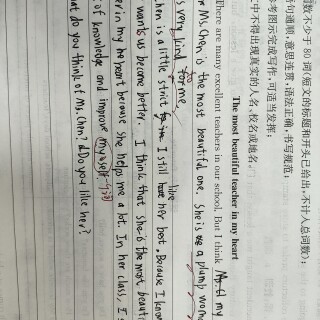 词数不少于80词(短文的标题和开头已给出,不计入总词数);
语句通顺,意思连贯,语法正确,书写规范;
参考图示完成写作,可适当发挥;
文中不得出现真实的人名,校名或地名。
The most beautiful teacher in my heart
There are many excellent teachers in our school. But I think my
Ms. Chen is the most beautiful one. She is a plump wom
is very kind to me.
hen is a little strict I still like her best. Because I know
wants us become better. I think that she is the most beauti
er in my heart because she helps me a lot. In her class, I
of knowledge and improve myself.
at do you think of Ms. Chen? Do you like her?